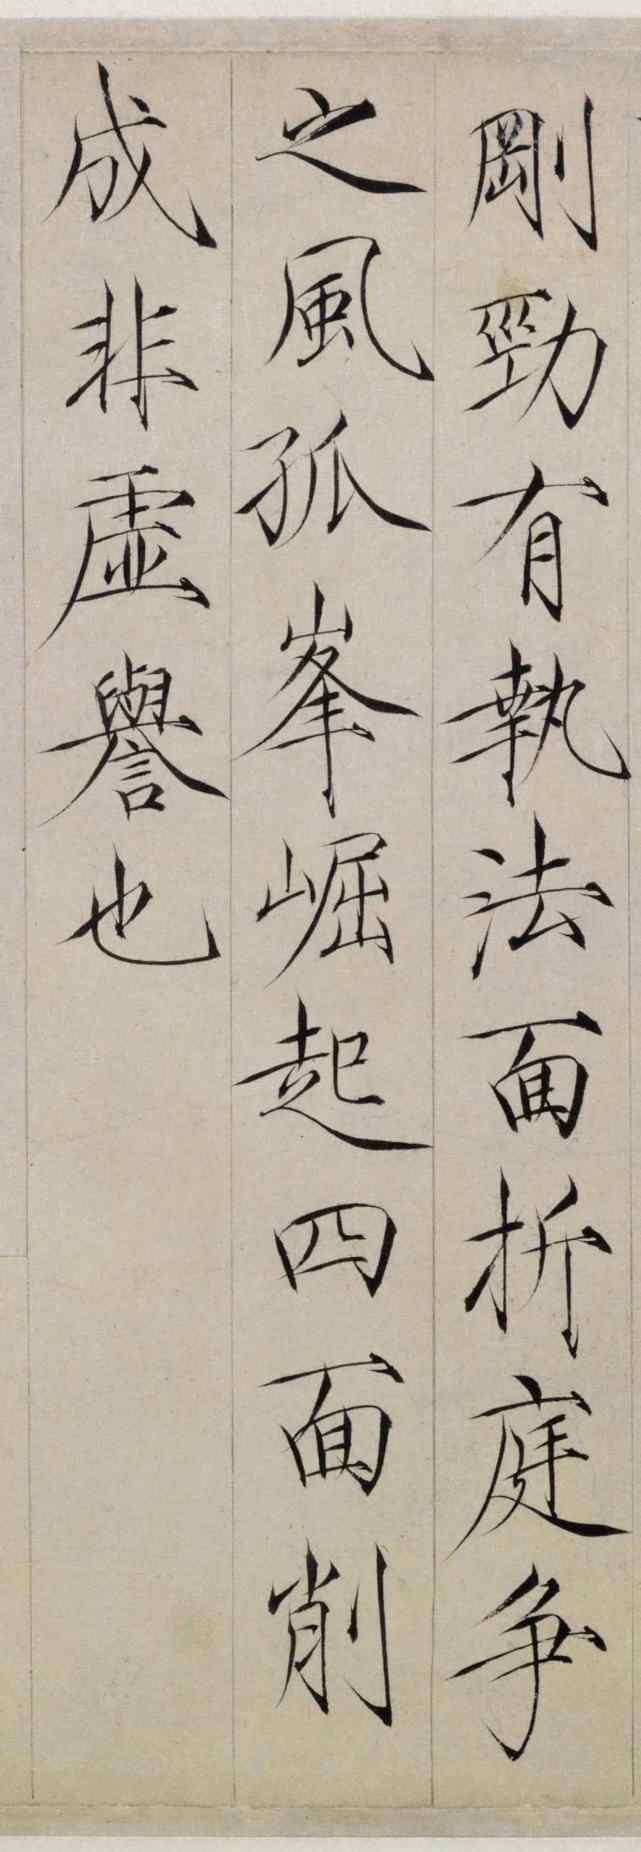 剛勁有執法面折庭争
之風孤峯崛起四面削
成非虛譽也